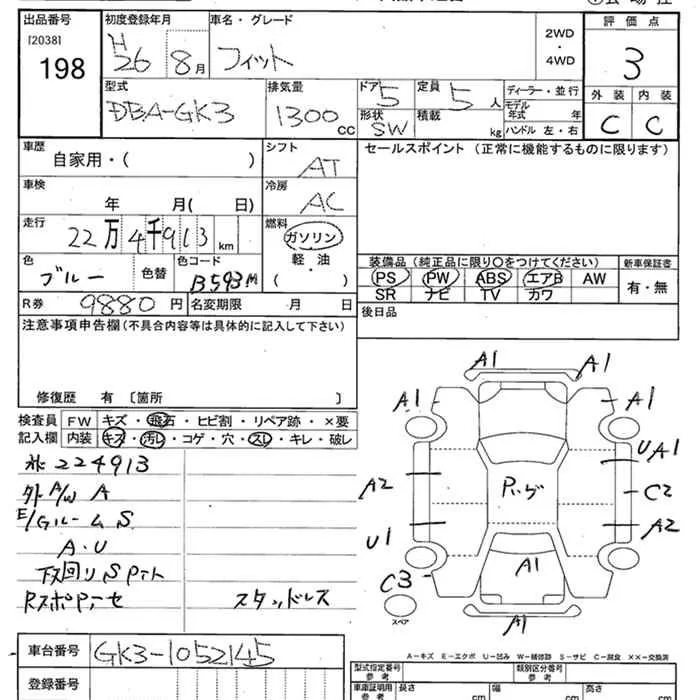 出品番号 初度登録年月 車名・グレード 2WD・4WD 評価点
[2038] 198 H26 8月 フィット 3
型式 排気量 ドア 定員 ディーラー・並行 外装 内装
DBA-GK3 1300cc 5 5人 モデル年式 年 C C
形状 SW 積載 kg ハンドル 左・右
車歴 シフト セールスポイント (正常に機能するものに限ります)
自家用・( ) AT
車検 冷房
年 月( 日) AC
走行 燃料
22万4千913km ガソリン
軽・油
( )
色 色替 色コード 装備品 (純正品に限り○をつけてください) 新車保証書
ブルー B593M PS PW ABS エアB AW 有・無
SR ナビ TV カワ
R券 9880円 名変期限 月 日 後日品
注意事項申告欄 (不具合内容等は具体的に記入して下さい)
修復歴 有 [箇所 ]
検査員 FW キズ・飛石・ヒビ割・リペア跡・×要
記入欄 内装 キズ・汚レ・コゲ・穴・スレ・キレ・破レ
224913
外A/W A
E/Gルーム S
A・U
下回り S
スタッドレス
A1 A1
A1 A1
UA1
A2 C2
A2
U1
A1
C3
スペア
A1
車台番号 GK3-1052145
登録番号
A-キズ E-エクボ U-凹み W-補修跡 S-サビ C-腐食 XX-交換済
型式指定番号 参考 類別区分番号 参考
車庫証明用 参考 長さ cm 幅 cm 高さ cm